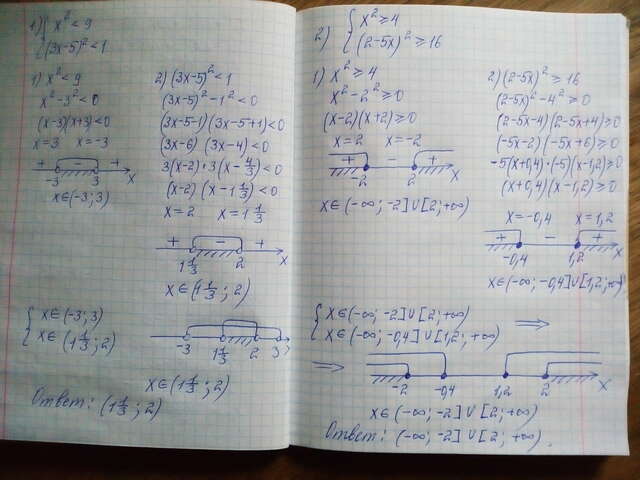 1) { x² < 9
(3x-5)² < 1
1) x² < 9
x² - 3² < 0
(x-3)(x+3) < 0
x = 3 x = -3
+ - +
-3 3 x
x ∈ (-3; 3)
2) (3x-5)² < 1
(3x-5)² - 1² < 0
(3x-5-1)(3x-5+1) < 0
(3x-6)(3x-4) < 0
3(x-2)·3(x-4/3) < 0
(x-2)(x-1 1/3) < 0
x = 2 x = 1 1/3
+ - +
1 1/3 2 x
x ∈ (1 1/3; 2)
{ x ∈ (-3; 3)
x ∈ (1 1/3; 2)
-3 1 1/3 2 3
x ∈ (1 1/3; 2)
Ответ: (1 1/3; 2)
2) { x² ≥ 4
(2-5x)² ≥ 16
1) x² ≥ 4
x² - 2² ≥ 0
(x-2)(x+2) ≥ 0
x = 2 x = -2
+ - +
-2 2 x
x ∈ (-∞; -2] ∪ [2; +∞)
2) (2-5x)² ≥ 16
(2-5x)² - 4² ≥ 0
(2-5x-4)(2-5x+4) ≥ 0
(-5x-2)(-5x+6) ≥ 0
-5(x+0,4)·(-5)(x-1,2) ≥ 0
(x+0,4)(x-1,2) ≥ 0
x = -0,4 x = 1,2
+ - +
-0,4 1,2 x
x ∈ (-∞; -0,4] ∪ [1,2; +∞)
{ x ∈ (-∞; -2] ∪ [2; +∞)
x ∈ (-∞; -0,4] ∪ [1,2; +∞) ⇒
⇒
-2 -0,4 1,2 2 x
x ∈ (-∞; -2] ∪ [2; +∞)
Ответ: (-∞; -2] ∪ [2; +∞).